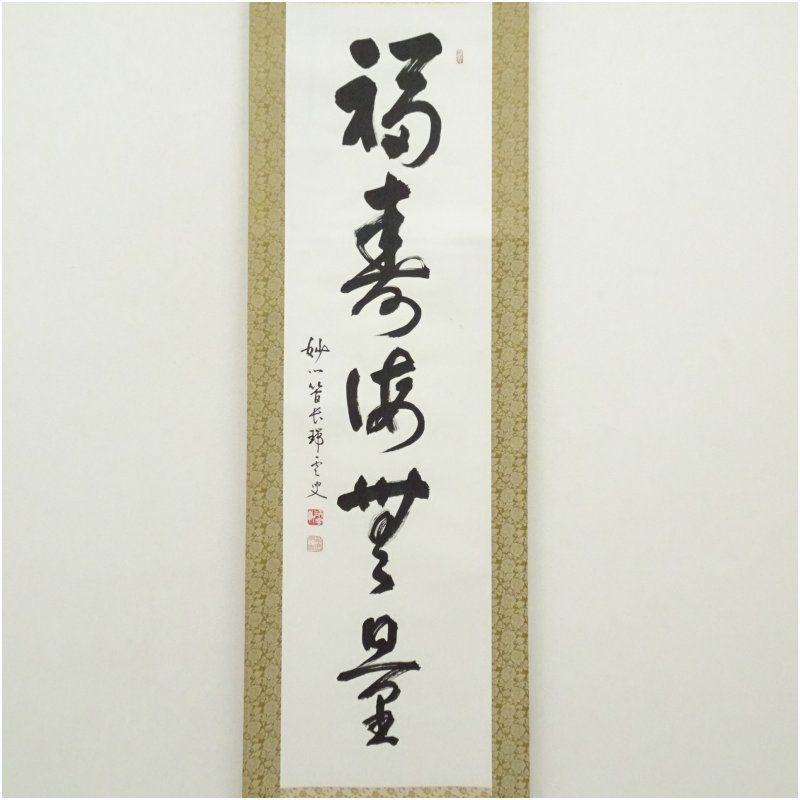 福寿海無量
妙心管長瑞雲叟